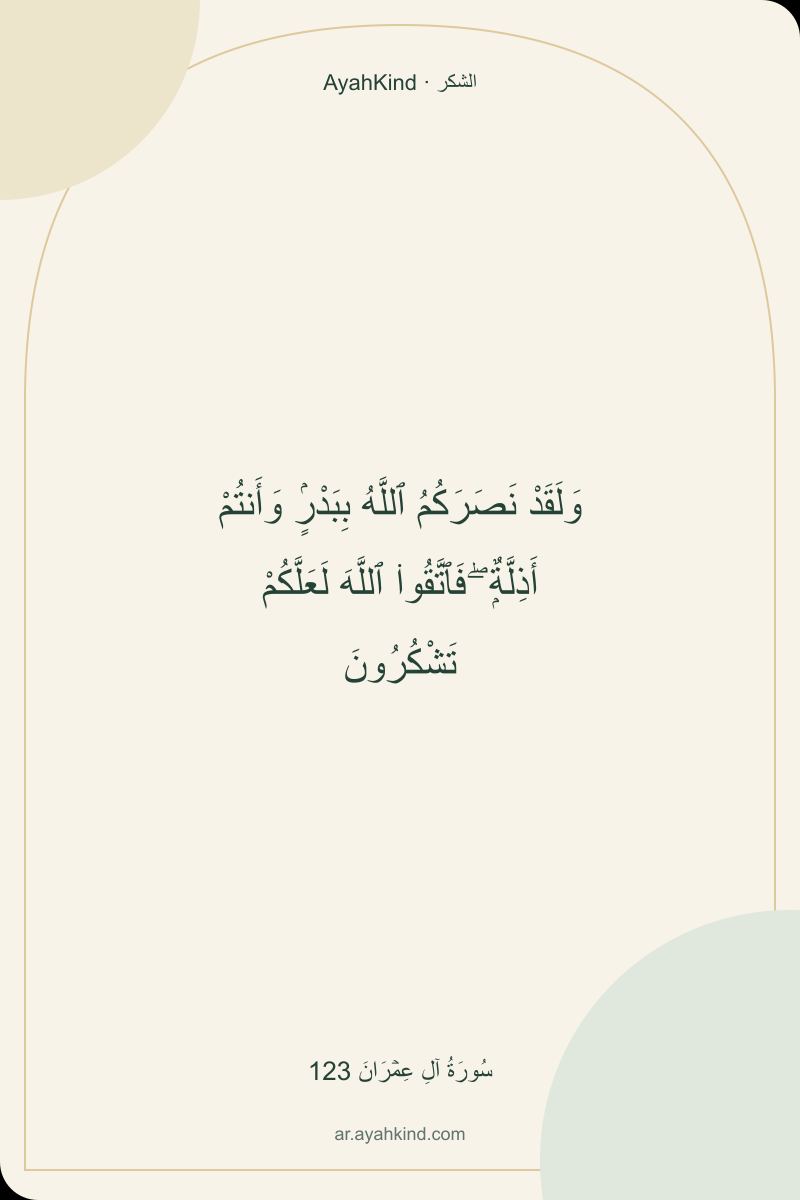 AyahKind · الشكر
وَلَقَدْ نَصَرَكُمُ ٱللَّهُ بِبَدْرٍۢ وَأَنتُمْ
أَذِلَّةٌۭ ۖ فَٱتَّقُوا۟ ٱللَّهَ لَعَلَّكُمْ
تَشْكُرُونَ
سُورَةُ آلِ عِمۡرَانَ 123
ar.ayahkind.com